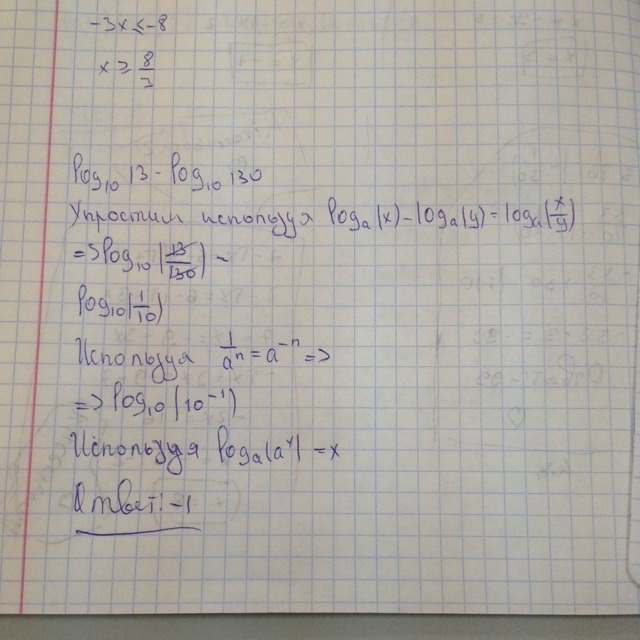 -3x ≤ -8
x ≥ 8/3
log₁₀ 13 - log₁₀ 130
Упростим используя logₐ(x) - logₐ(y) = logₐ(x/y)
=> log₁₀(13/130) -
log₁₀(1/10)
Используя 1/aⁿ = a⁻ⁿ =>
=> log₁₀(10⁻¹)
Используя logₐ(aˣ) = x
Ответ: -1